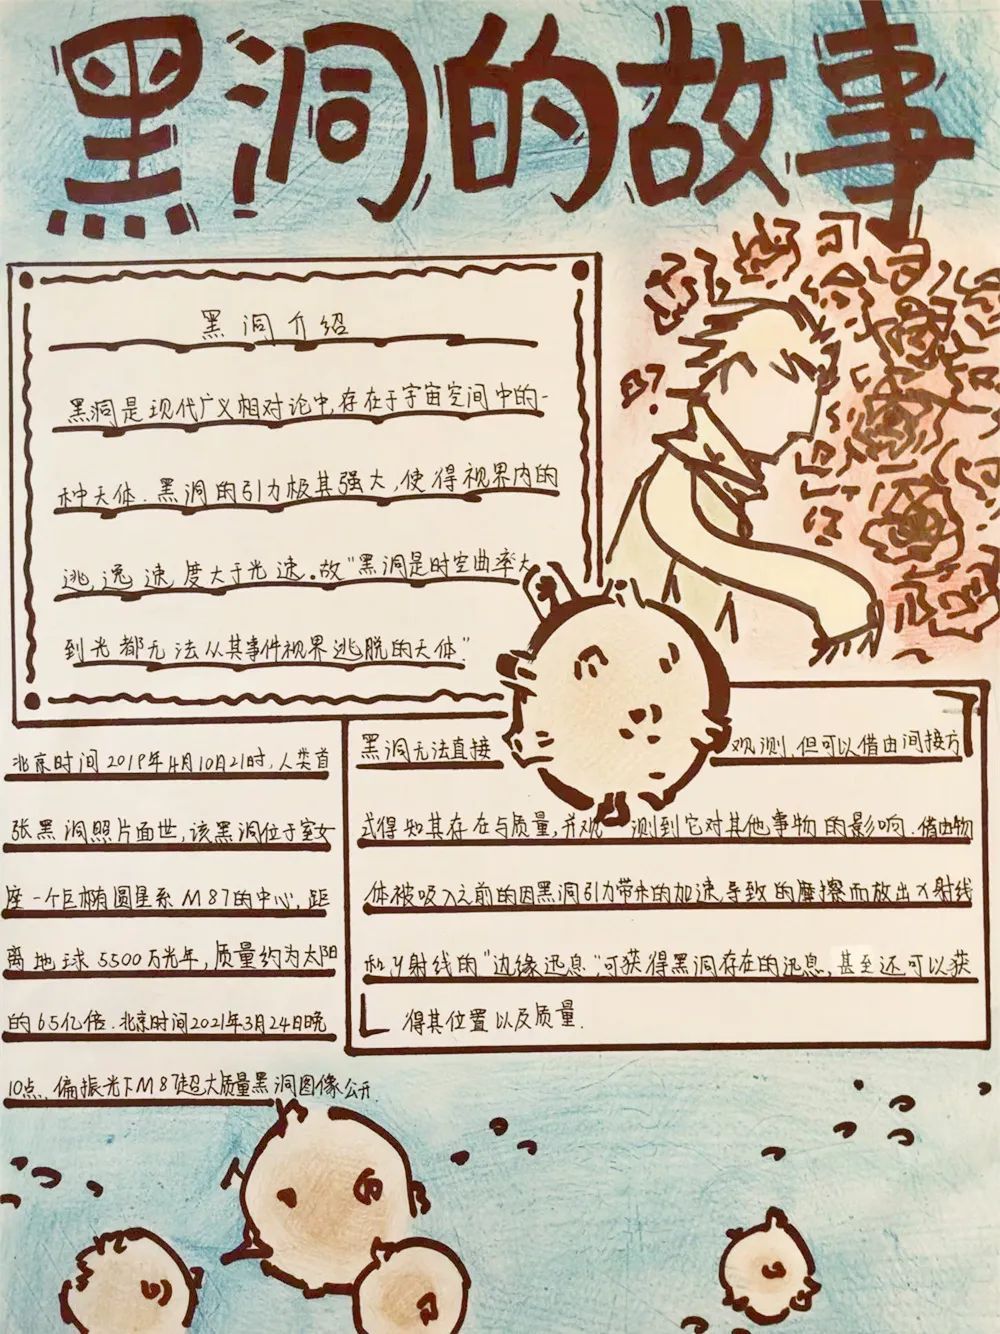 黑洞的故事
黑洞介绍
黑洞是现代广义相对论中,存在于宇宙空间中的一
种天体.黑洞的引力极其强大,使得视界内的
逃逸速度大于光速。故"黑洞是时空曲率大
到光都无法从其事件视界逃脱的天体"
北京时间2019年4月10日21时,人类首
张黑洞照片面世,该黑洞位于室女
座一个巨椭圆星系M87的中心,距
离地球5500万光年,质量约为太阳
的65亿倍.北京时间2021年3月24日晚
10点,偏振光下M87超大质量黑洞图像公开
黑洞无法直接观测,但可以借由间接方
式得知其存在与质量,并观测到它对其他事物的影响.借由物
体被吸入之前的因黑洞引力带来的加速导致的摩擦而放出x射线
和y射线的"边缘迅息"可获得黑洞存在的迅息,甚至还可以获
得其位置以及质量.